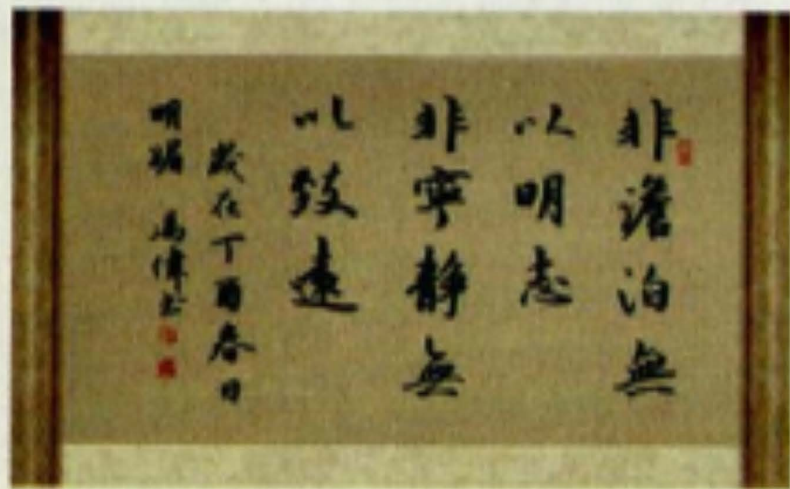 非澹泊無
以明志
非寧静無
以致遠
歲在丁酉春日
明瑞 馮偉書